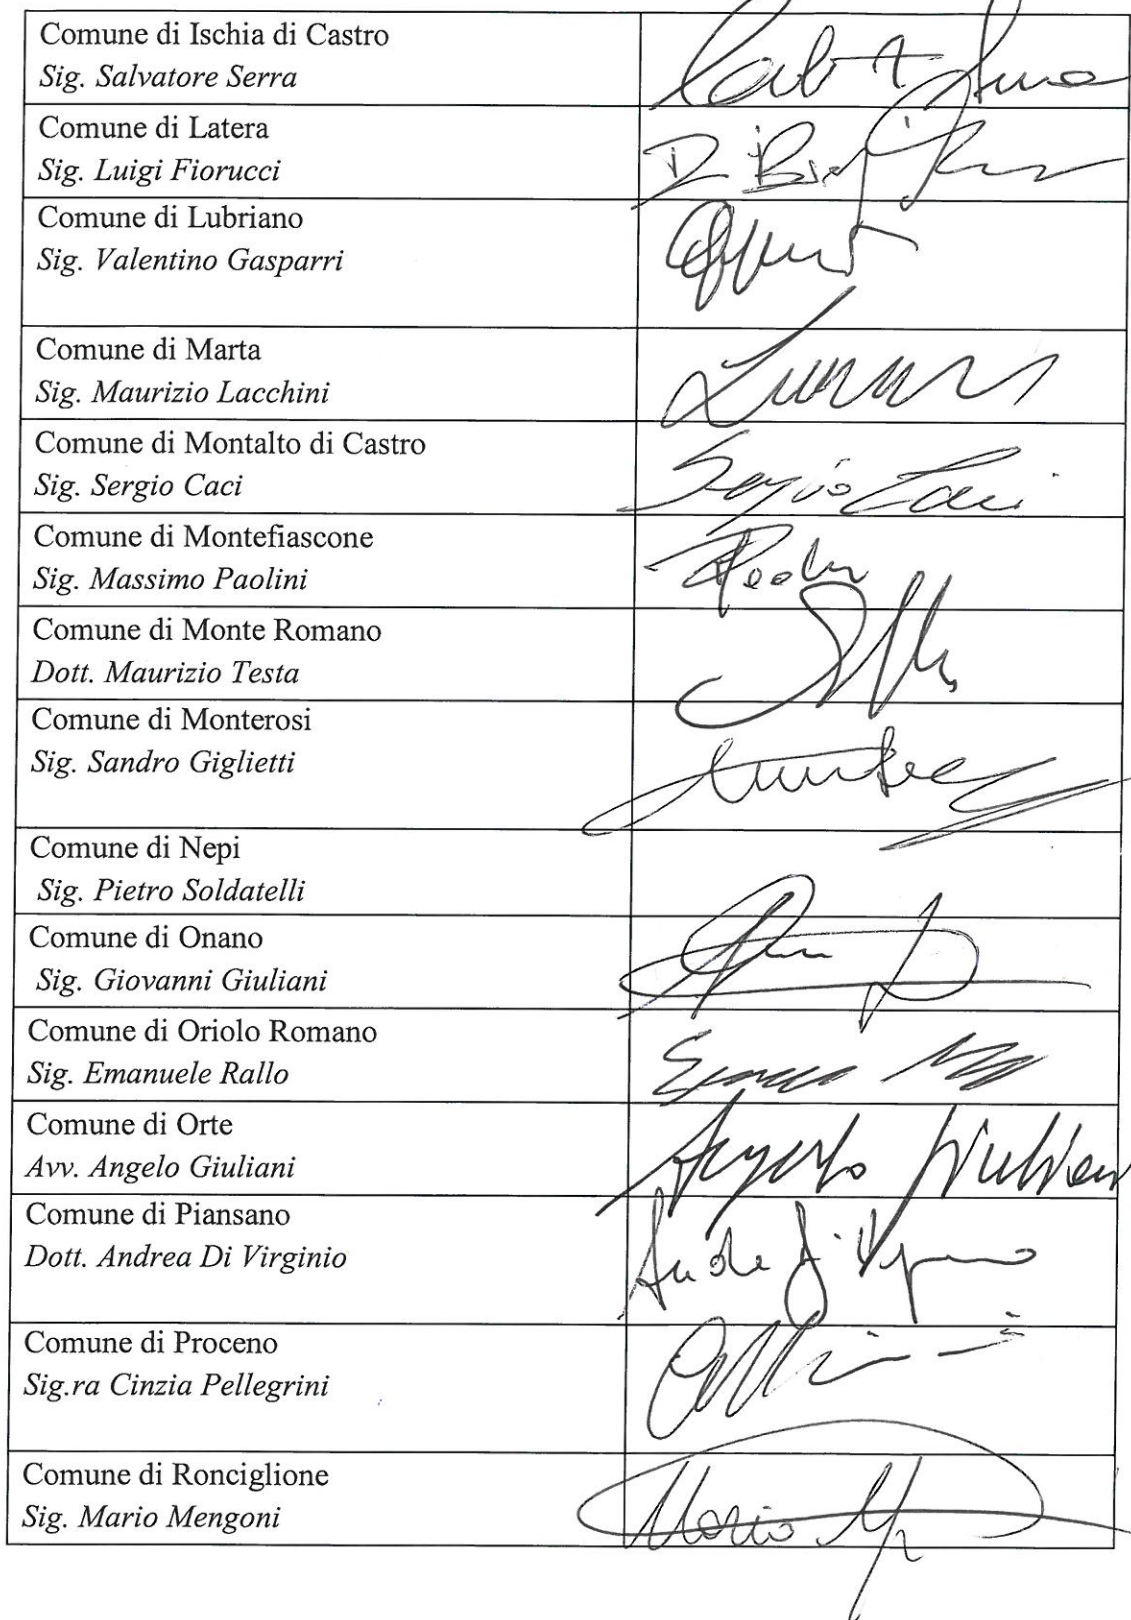 Comune di Ischia di Castro
Sig. Salvatore Serra
Comune di Latera
Sig. Luigi Fiorucci
Comune di Lubriano
Sig. Valentino Gasparri
Comune di Marta
Sig. Maurizio Lacchini
Comune di Montalto di Castro
Sig. Sergio Caci
Sergio Caci
Comune di Montefiascone
Sig. Massimo Paolini
Comune di Monte Romano
Dott. Maurizio Testa
Comune di Monterosi
Sig. Sandro Giglietti
Comune di Nepi
Sig. Pietro Soldatelli
Comune di Onano
Sig. Giovanni Giuliani
Comune di Oriolo Romano
Sig. Emanuele Rallo
Comune di Orte
Avv. Angelo Giuliani
Angelo Giuliani
Comune di Piansano
Dott. Andrea Di Virginio
Comune di Proceno
Sig.ra Cinzia Pellegrini
Comune di Ronciglione
Sig. Mario Mengoni
Mario